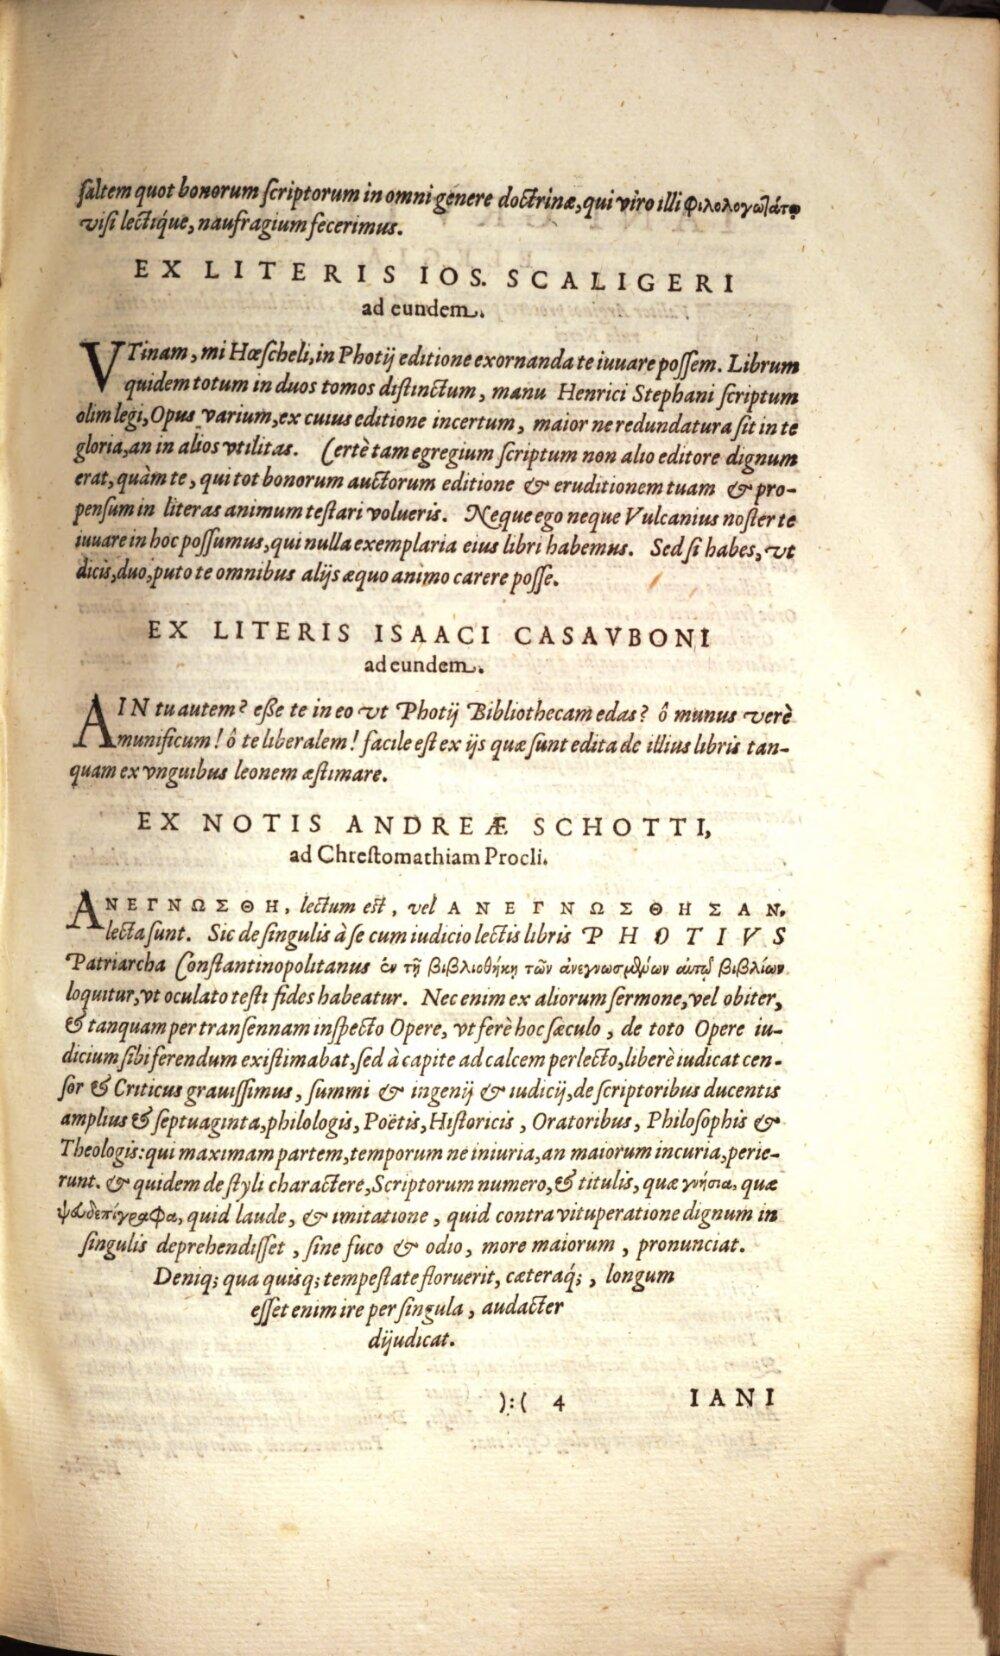 saltem quot bonorum scriptorum in omni genere doctrinæ, qui viro illi φιλολογωτάτῳ
visi lectique, naufragium fecerimus.
EX LITERIS IOS. SCALIGERI
ad eundem.
VTinam, mi Hœscheli, in Photij editione exornanda te iuuare possem. Librum
quidem totum in duos tomos distinctum, manu Henrici Stephani scriptum
olim legi, Opus varium, ex cuius editione incertum, maior ne redundatura sit in te
gloria, an in alios vtilitas. Certè tam egregium scriptum non alio editore dignum
erat, quàm te, qui tot bonorum auctorum editione & eruditionem tuam & pro-
pensum in literas animum testari volueris. Neque ego neque Vulcanius noster te
iuuare in hoc possumus, qui nulla exemplaria eius libri habemus. Sed si habes, vt
dicis, duo, puto te omnibus alijs æquo animo carere posse.
EX LITERIS ISAACI CASAVBONI
ad eundem.
AIN tu autem? esse te in eo vt Photij Bibliothecam edas? ô munus verè
munificum! ô te liberalem! facile est ex ijs quæ sunt edita de illius libris tan-
quam ex vnguibus leonem æstimare.
EX NOTIS ANDREÆ SCHOTTI,
ad Chrestomathiam Procli.
ΑΝΕΓΝΩΣΘΗ, lectum est, vel ΑΝΕΓΝΩΣΘΗΣΑΝ,
lecta sunt. Sic de singulis à se cum iudicio lectis libris PHOTIVS
Patriarcha Constantinopolitanus ἐν τῇ βιβλιοθήκῃ τῶν ἀνεγνωσμένων αὐτῷ βιβλίων
loquitur, vt oculato testi fides habeatur. Nec enim ex aliorum sermone, vel obiter,
& tanquam per transennam inspecto Opere, vt ferè hoc sæculo, de toto Opere iu-
dicium sibi ferendum existimabat, sed à capite ad calcem perlecto, liberè iudicat cen-
sor & Criticus grauissimus, summi & ingenij & iudicij, de scriptoribus ducentis
amplius & septuaginta, philologis, Poëtis, Historicis, Oratoribus, Philosophis &
Theologis: qui maximam partem, temporum ne iniuria, an maiorum incuria, perie-
runt. & quidem de styli charactere, Scriptorum numero, & titulis, quæ γνήσια, quæ
ψευδεπίγραφα, quid laude, & imitatione, quid contra vituperatione dignum in
singulis deprehendisset, sine fuco & odio, more maiorum, pronunciat.
Deniq; qua quisq; tempestate floruerit, cæteraq́;, longum
esset enim ire per singula, audacter
dijudicat.
):( 4 IANI